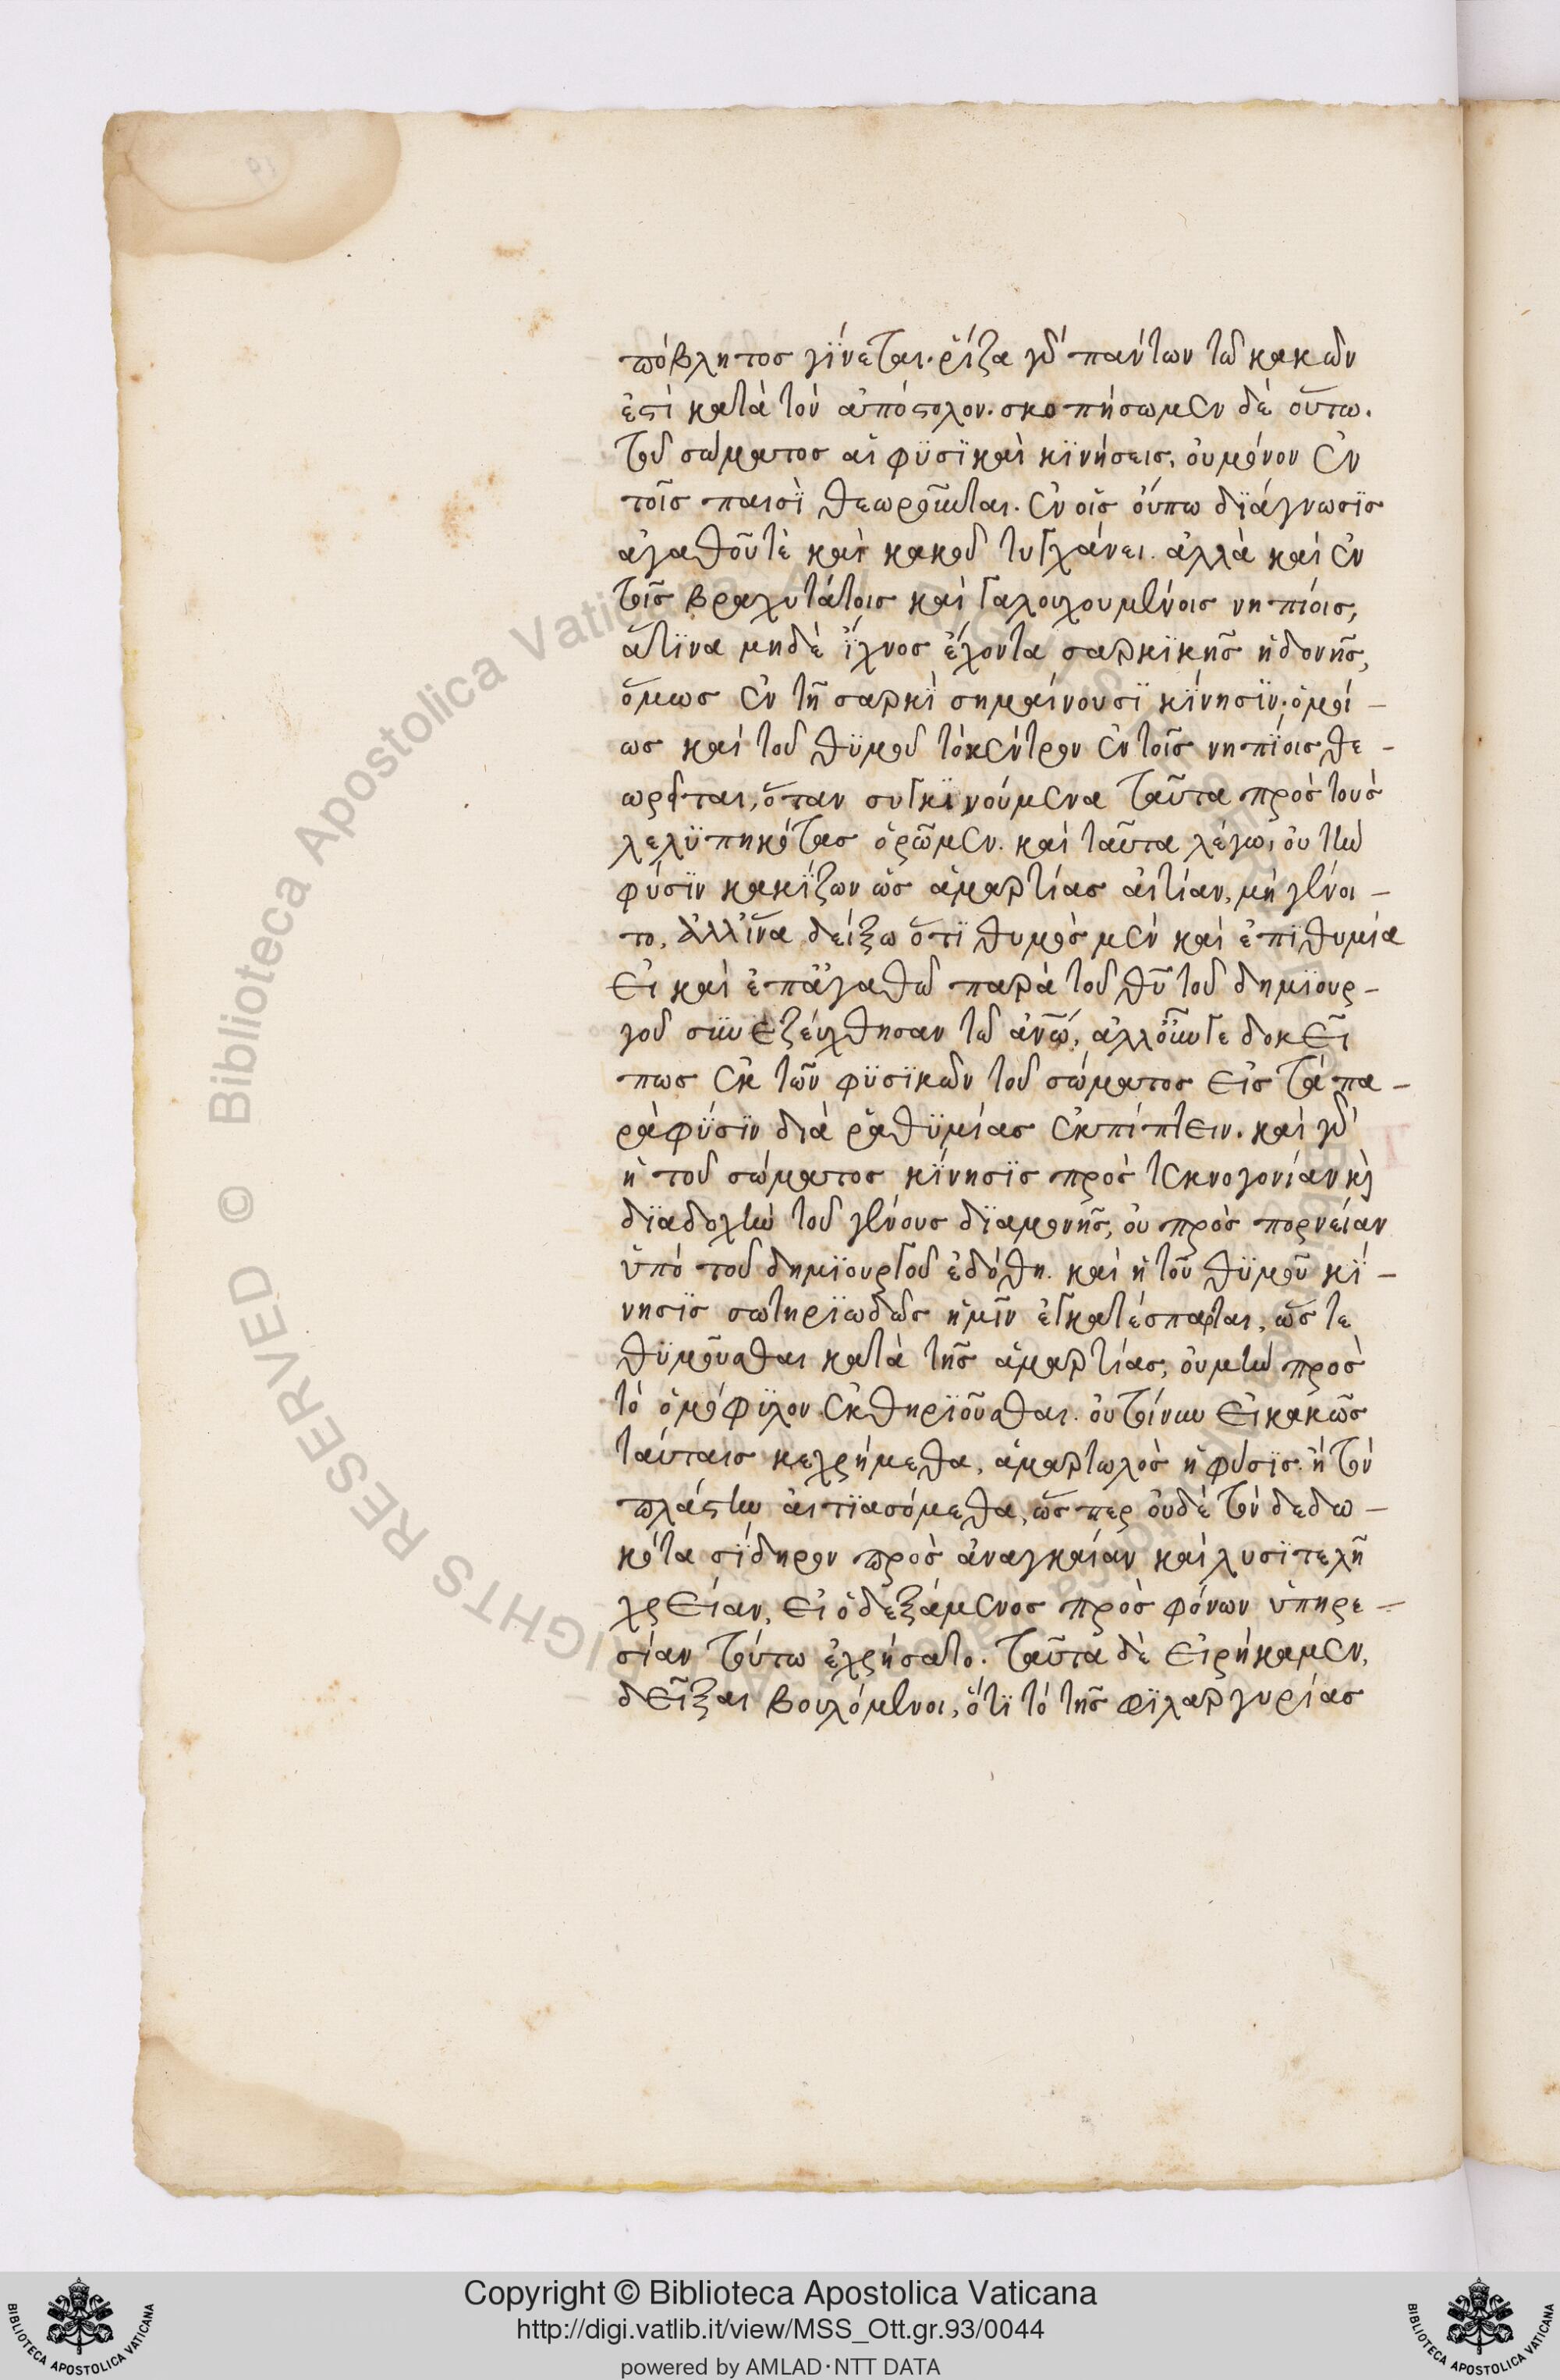 πόβλητος γΐνεται· ρίζα γὰρ πάντων τῶ κακῶν
ἐστὶ κατὰ τὸν ἀπόστολον. σκοπήσωμεν δὲ οὕτω.
τοῦ σώματος αἱ φϋσϊκαὶ κϊνήσεις, οὐ μόνον ἐν
τοῖς παισὶ θεωροῦνται. ἐν οἷς οὔπω διάγνωσϊς
ἀγαθοῦ τὲ καὶ κακοῦ τυγχάνει. ἀλλὰ καὶ ἐν
τοῖς βραχυτάτοις καὶ γαλουχουμένοις νηπίοις,
ἅτϊνα μηδὲ ἴχνος ἔχοντα σαρκϊκῆς ἡδονῆς,
ὅμως ἐν τῇ σαρκὶ σημαίνουσϊ κΐνησϊν· ὁμοί-
ως καὶ τοῦ θϋμοῦ τὸ κέντρον ἐν τοῖς νηπΐοις θε-
ωρεῖται, ὅταν συγκϊνούμενα ταῦτα πρὸς τοὺς
λελϋπηκότας ὁρῶμεν. καὶ ταῦτα λέγω, οὐ τὴν
φύσϊν κακΐζων ὡς ἁμαρτίας αἰτίαν, μὴ γένοι-
το, ἀλλ' ἵνα δείξω ὅτϊ θυμὸς μὲν καὶ ἐπϊθυμία
εἰ καὶ ἐπ' ἀγαθῶ παρὰ τοῦ θῦ τοῦ δημϊουρ-
γοῦ συνεζεύχθησαν τῶ ἀνῶ, ἀλλ' οὖν γε δοκεῖ
πως ἐκ τῶν φϋσϊκῶν τοῦ σώματος εἰς τὰ πα-
ρὰ φύσϊν διὰ ῥαθϋμίας ἐκπίπτειν. καὶ γὰρ
ἡ τοῦ σώματος κίνησϊς πρὸς τεκνογονίαν κὶ
διαδοχὴν τοῦ γένους δϊαμονῆς, οὐ πρὸς πορνείαν
ὑπὸ τοῦ δημϊουργοῦ ἐδόθη. καὶ ἡ τοῦ θϋμοῦ κΐ-
νησϊς σωτηρϊωδῶς ἡμῖν ἐγκατέσπαρται, ὥστε
θϋμοῦσθαι κατὰ τῆς ἁμαρτίας, οὐ μὴν πρὸς
τὸ ὁμόφϋλον ἐκθηρϊοῦσθαι. οὐ τοίνυν εἰ κακῶς
ταύταις κεχρήμεθα, ἁμαρτωλὸς ἡ φύσϊς. ἢ τὸν
πλάστην αἰτϊασόμεθα, ὥσπερ οὐδὲ τὸν δεδω-
κότα σΐδηρον πρὸς ἀναγκαίαν καὶ λυσϊτελῆ
χρείαν, εἰ ὁ δεξάμενος πρὸς φόνων ὑπηρε-
σίαν τούτω ἐχρήσατο. ταῦτα δὲ εἰρήκαμεν,
δεῖξαι βουλόμενοι, ὅτϊ τὸ τῆς φϊλαργυρίας
Copyright © Biblioteca Apostolica Vaticana
http://digi.vatlib.it/view/MSS_Ott.gr.93/0044
powered by AMLAD·NTT DATA